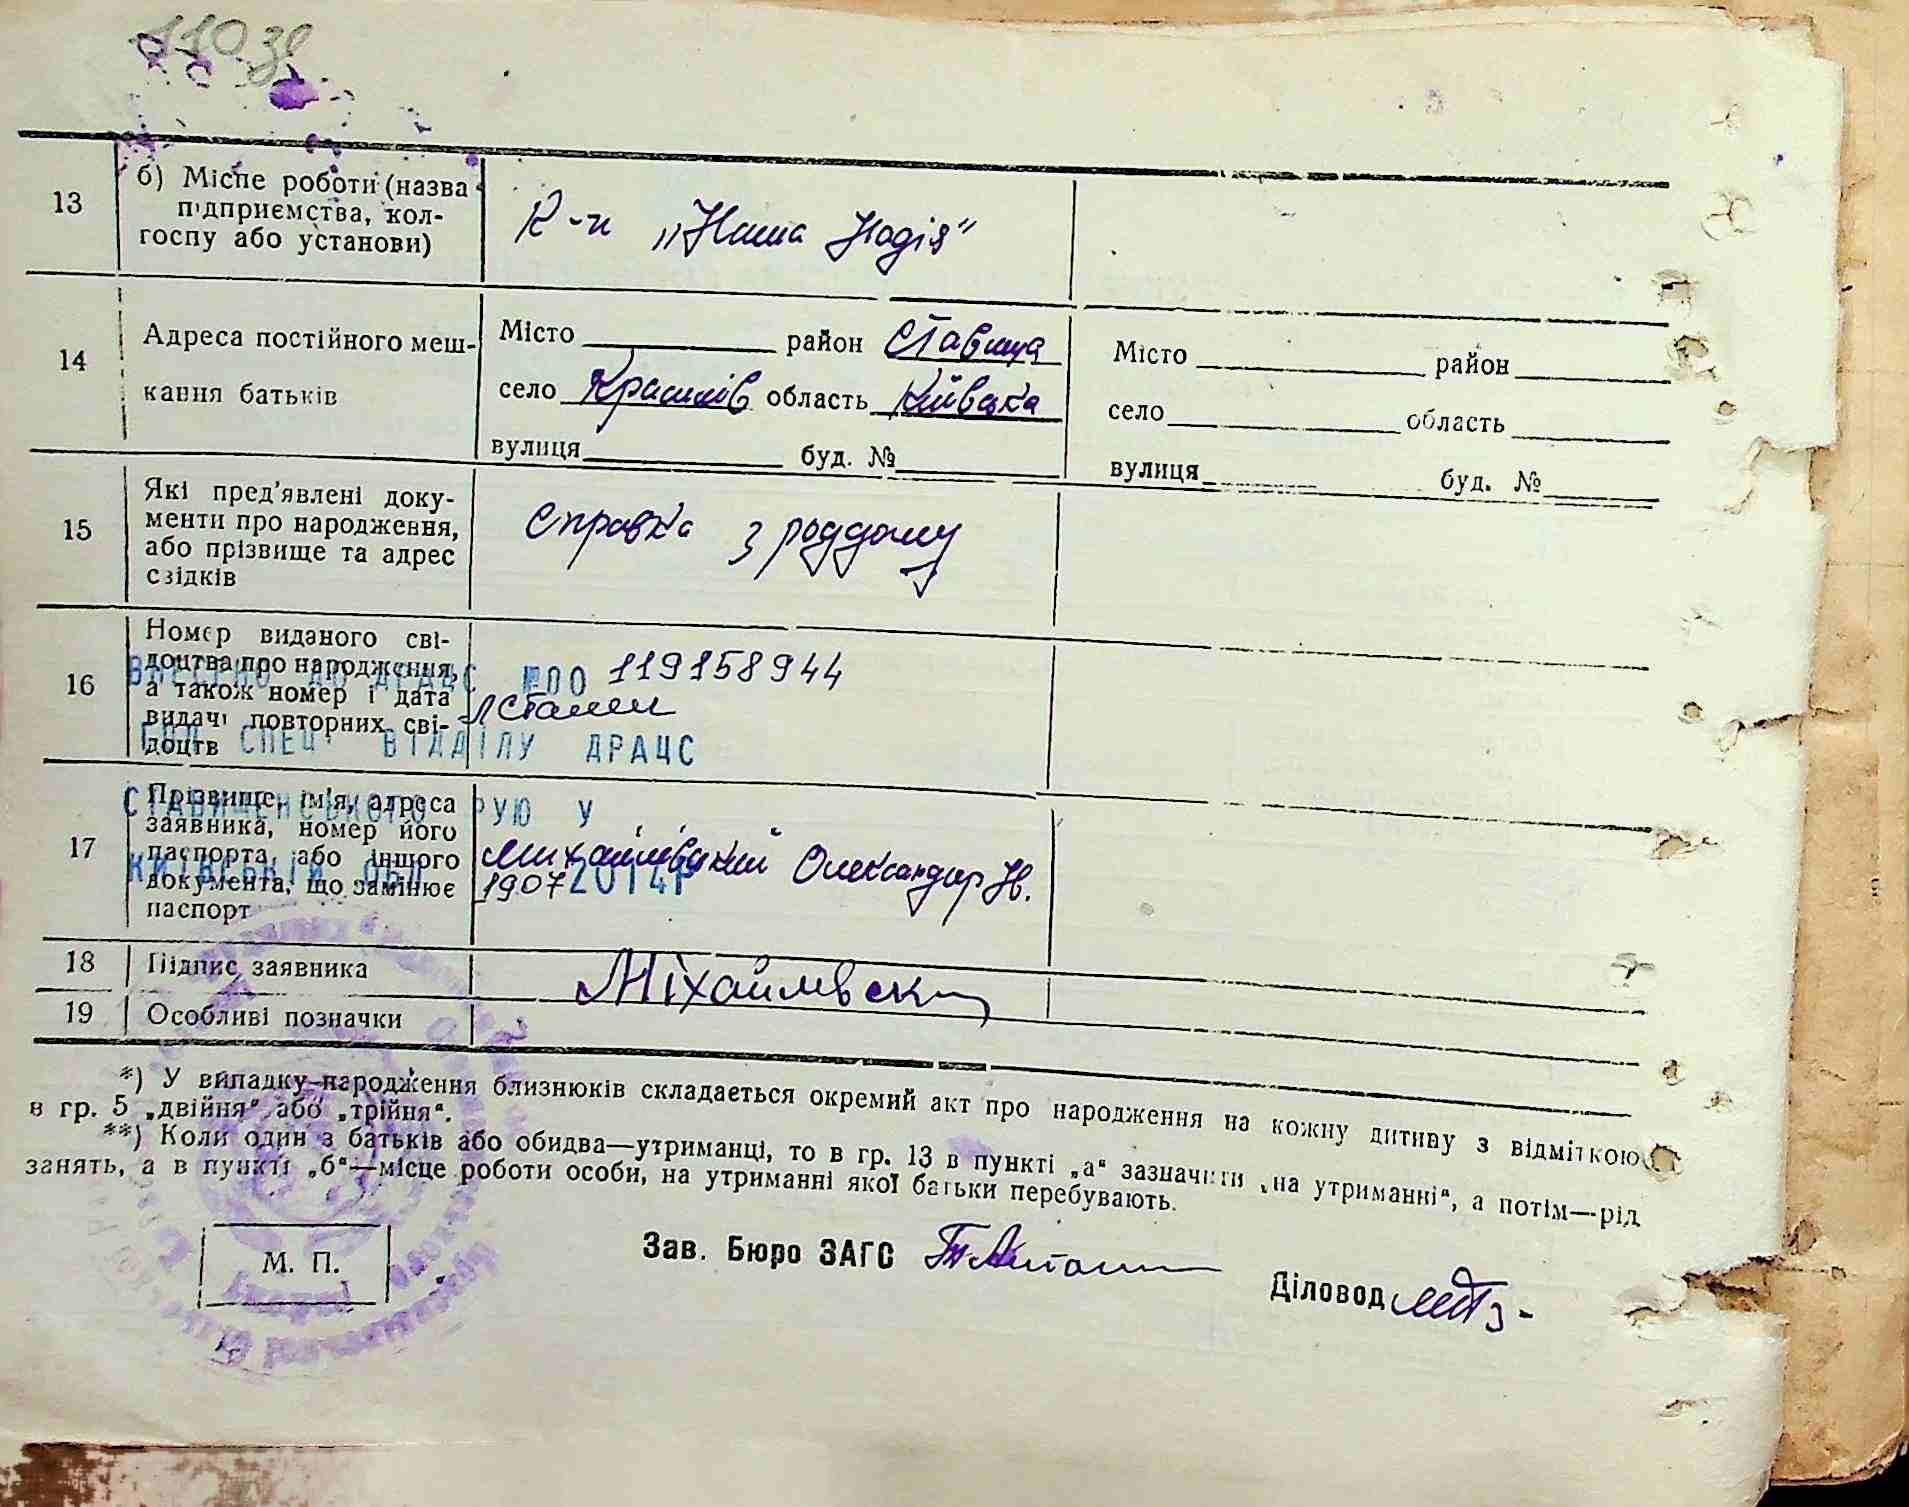 110 зв
13
б) Місце роботи (назва
підприємства, кол-
госпу або установи)
К-п „Наша Надія"
14
Адреса постійного меш-
кання батьків
Місто район Ставища
село Красилів область Київська
вулиця буд. №
Місто район
село область
вулиця буд. №
15
Які пред'явлені доку-
менти про народження,
або прізвище та адрес
свідків
Справка з роддому
16
Номер виданого сві-
доцтва про народження,
а також номер і дата
видачі повторних сві-
доцтв
ВНЕСЕНО ДО ДРАЦС №00 119158944
СПЕЦ. ВІДДІЛУ ДРАЦС
17
Прізвище, ім'я, адреса
заявника, номер його
паспорта, або іншого
документа, що замінює
паспорт
СТАВИЩЕНСЬКОГО РУЮ У
КИЇВСЬКІЙ ОБЛ 1907 2014Р
Михайлівський Олександр
18
Підпис заявника
Міхайлевськ
19
Особливі позначки
*) У випадку народження близнюків складається окремий акт про народження на кожну дитину з відміткою
в гр. 5 „двійня" або „трійня".
**) Коли один з батьків або обидва—утриманці, то в гр. 13 в пункті „а" зазначити „на утриманні", а потім—рід
занять, а в пункті „б"—місце роботи особи, на утриманні якої батьки перебувають.
М. П.
Зав. Бюро ЗАГС
Діловод